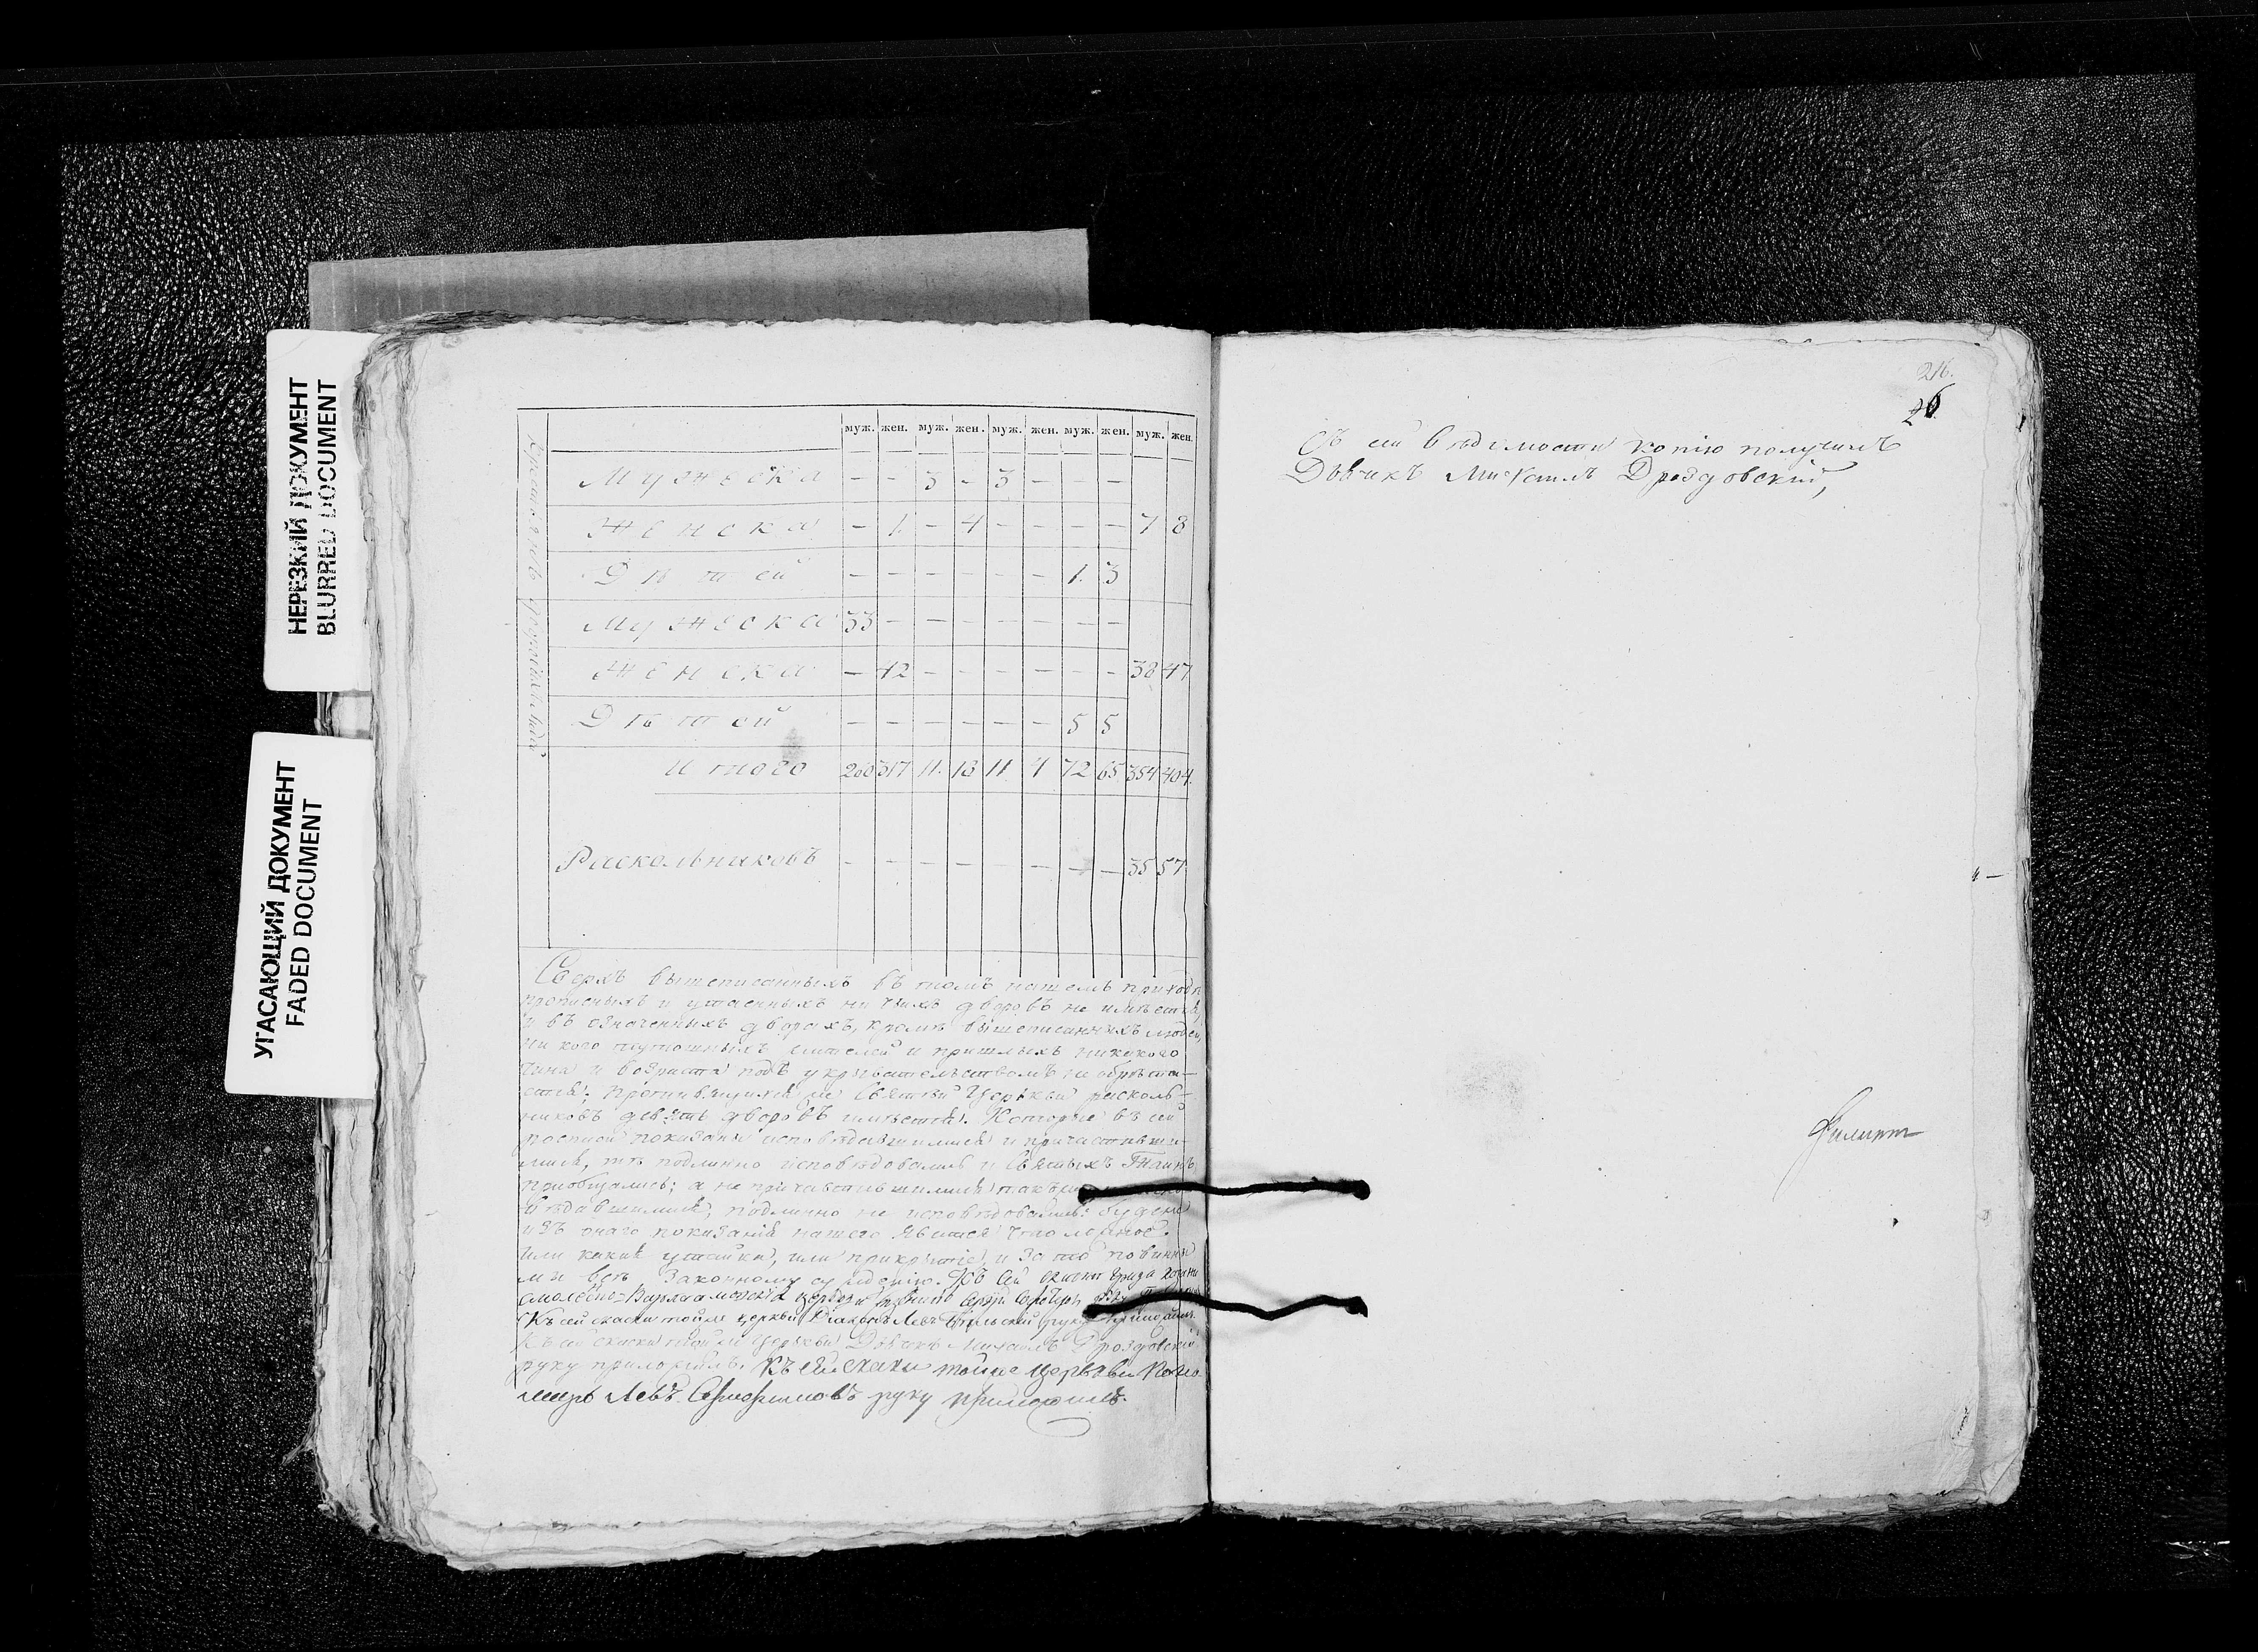 НЕРЕЗКИЙ ДОКУМЕНТ
BLURRED DOCUMENT
УГАСАЮЩИЙ ДОКУМЕНТ
FADED DOCUMENT
муж. жен. муж. жен. муж. жен. муж. жен. муж. жен.
Мужеска — — 3 — 3 — — —
Женска — 1. — 4 — — — — 7 8
Дѣтей — — — — — — 1. 3
Мужеска 33 — — — — — — —
Женска — 42 — — — — — — 38 47
Дѣтей — — — — — — 5 5
Итого 260 317 11. 18 11 4 72 65 354 404.
Раскольниковъ — — — — — — — — 35 57
Сверхъ вышеписанныхъ въ томъ нашемъ приходѣ
прописныхъ и утаенныхъ ни чьихъ дворовъ не имѣется,
и въ означенныхъ дворахъ, кромѣ вышеписанныхъ людей,
ни кого тутошныхъ жителей и пришлыхъ никакого
чина и возраста подъ укрывательствомъ не обрѣта-
ется; противящихся же Святѣй Церкви расколь-
никовъ девять дворовъ имѣется. Которые въ сей
росписи показаны исповѣдавшимися и причастивши-
мися, тѣ подлинно исповѣдовались и Святыхъ Таинъ
приобщались; а не причастившимися
вѣдавшимися, подлинно не исповѣдовались: буде же
изъ онаго показанія нашего явится что ложное
или какая утайка, или прикрытіе, и за то повинны
мы всѣ законному сужденію. Къ сей
церкви
Къ сей скаски тойже церкви Діаконъ Левъ руку приложилъ.
Къ сей скаски тойже церкви Дьячикъ Михаилъ Дроздовскій
руку приложилъ. Къ сей скаски тойже церкви Поно
марь Левъ руку приложилъ.
216.
26
Съ сей вѣдомости копію получилъ
Дьячикъ Михаилъ Дроздовскій,